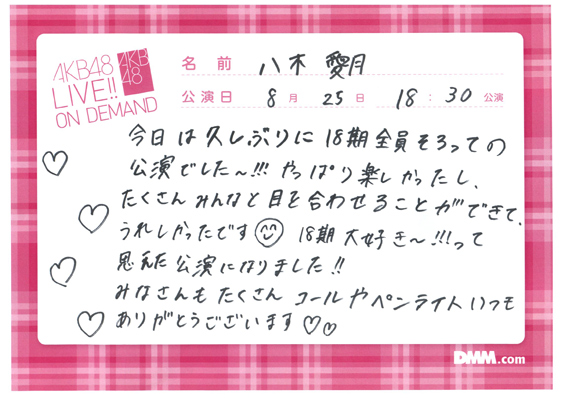 AKB48
LIVE!!
ON DEMAND
AKB
48
名前 八木 愛月
公演日 8月 25日 18:30 公演
今日は久しぶりに18期全員そろっての
公演でした~!!! やっぱり楽しかったし、
たくさんみんなと目を合わせることができて、
うれしかったです 18期大好き~!!!って
思えた公演になりました!!
みなさんもたくさん コールやペンライトいつも
ありがとうございます
DMM.com